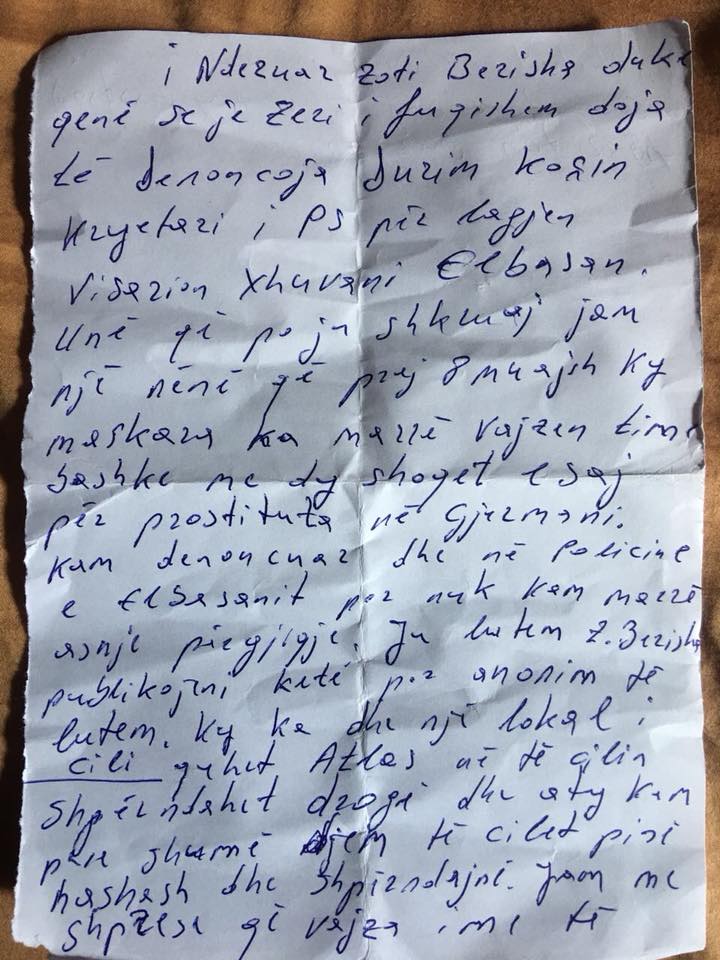 i Nderuar zoti Berisha duke
qenë se je Zeri i fuqishem doja
të denoncoja Durim
Kryetari i PS për lagjen
Visarion Xhuvani Elbasan.
Unë që po ju shkruaj jam
një nënë që prej 8 muajsh ky
maskara ka marrë vajzen time
bashkë me dy shoqet e saj
për prostituta në Gjermani.
Kam denoncuar dhe në Policine
e Elbasanit por nuk kam marrë
asnje përgjigje. Ju lutem Z. Berisha
publikojeni ketë por anonim të
lutem. Ky ka dhe një lokal i
cili quhet Atlas në të cilin
Shpërndahet drogë dhe aty kam
pare shumë djem të cilet pinë
hashash dhe Shpërndajnë. Jam me
shpresë që vajza ime të